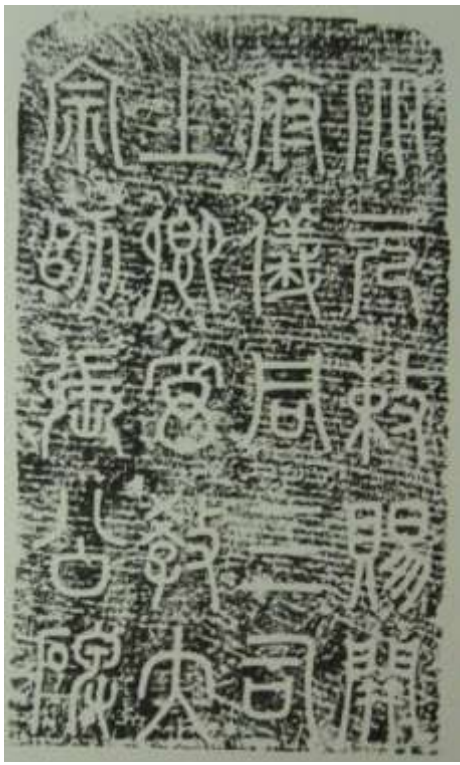 大元敕賜開
府儀同三司
上卿玄教大
宗師張公碑